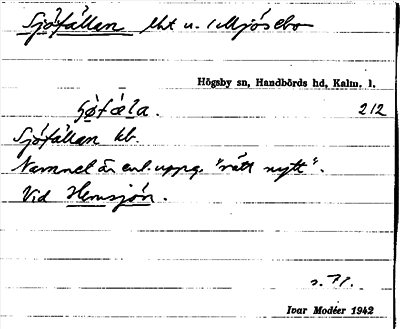 Sjöfällan lht u. Mjösebo
Högsby sn, Handbörds hd, Kalm. l.
fàla. 212
Sjöfällan kb.
Namnet är enl. uppg. "rätt nytt".
Vid Hemsjön.
s. 71.
Ivar Modéer 1942